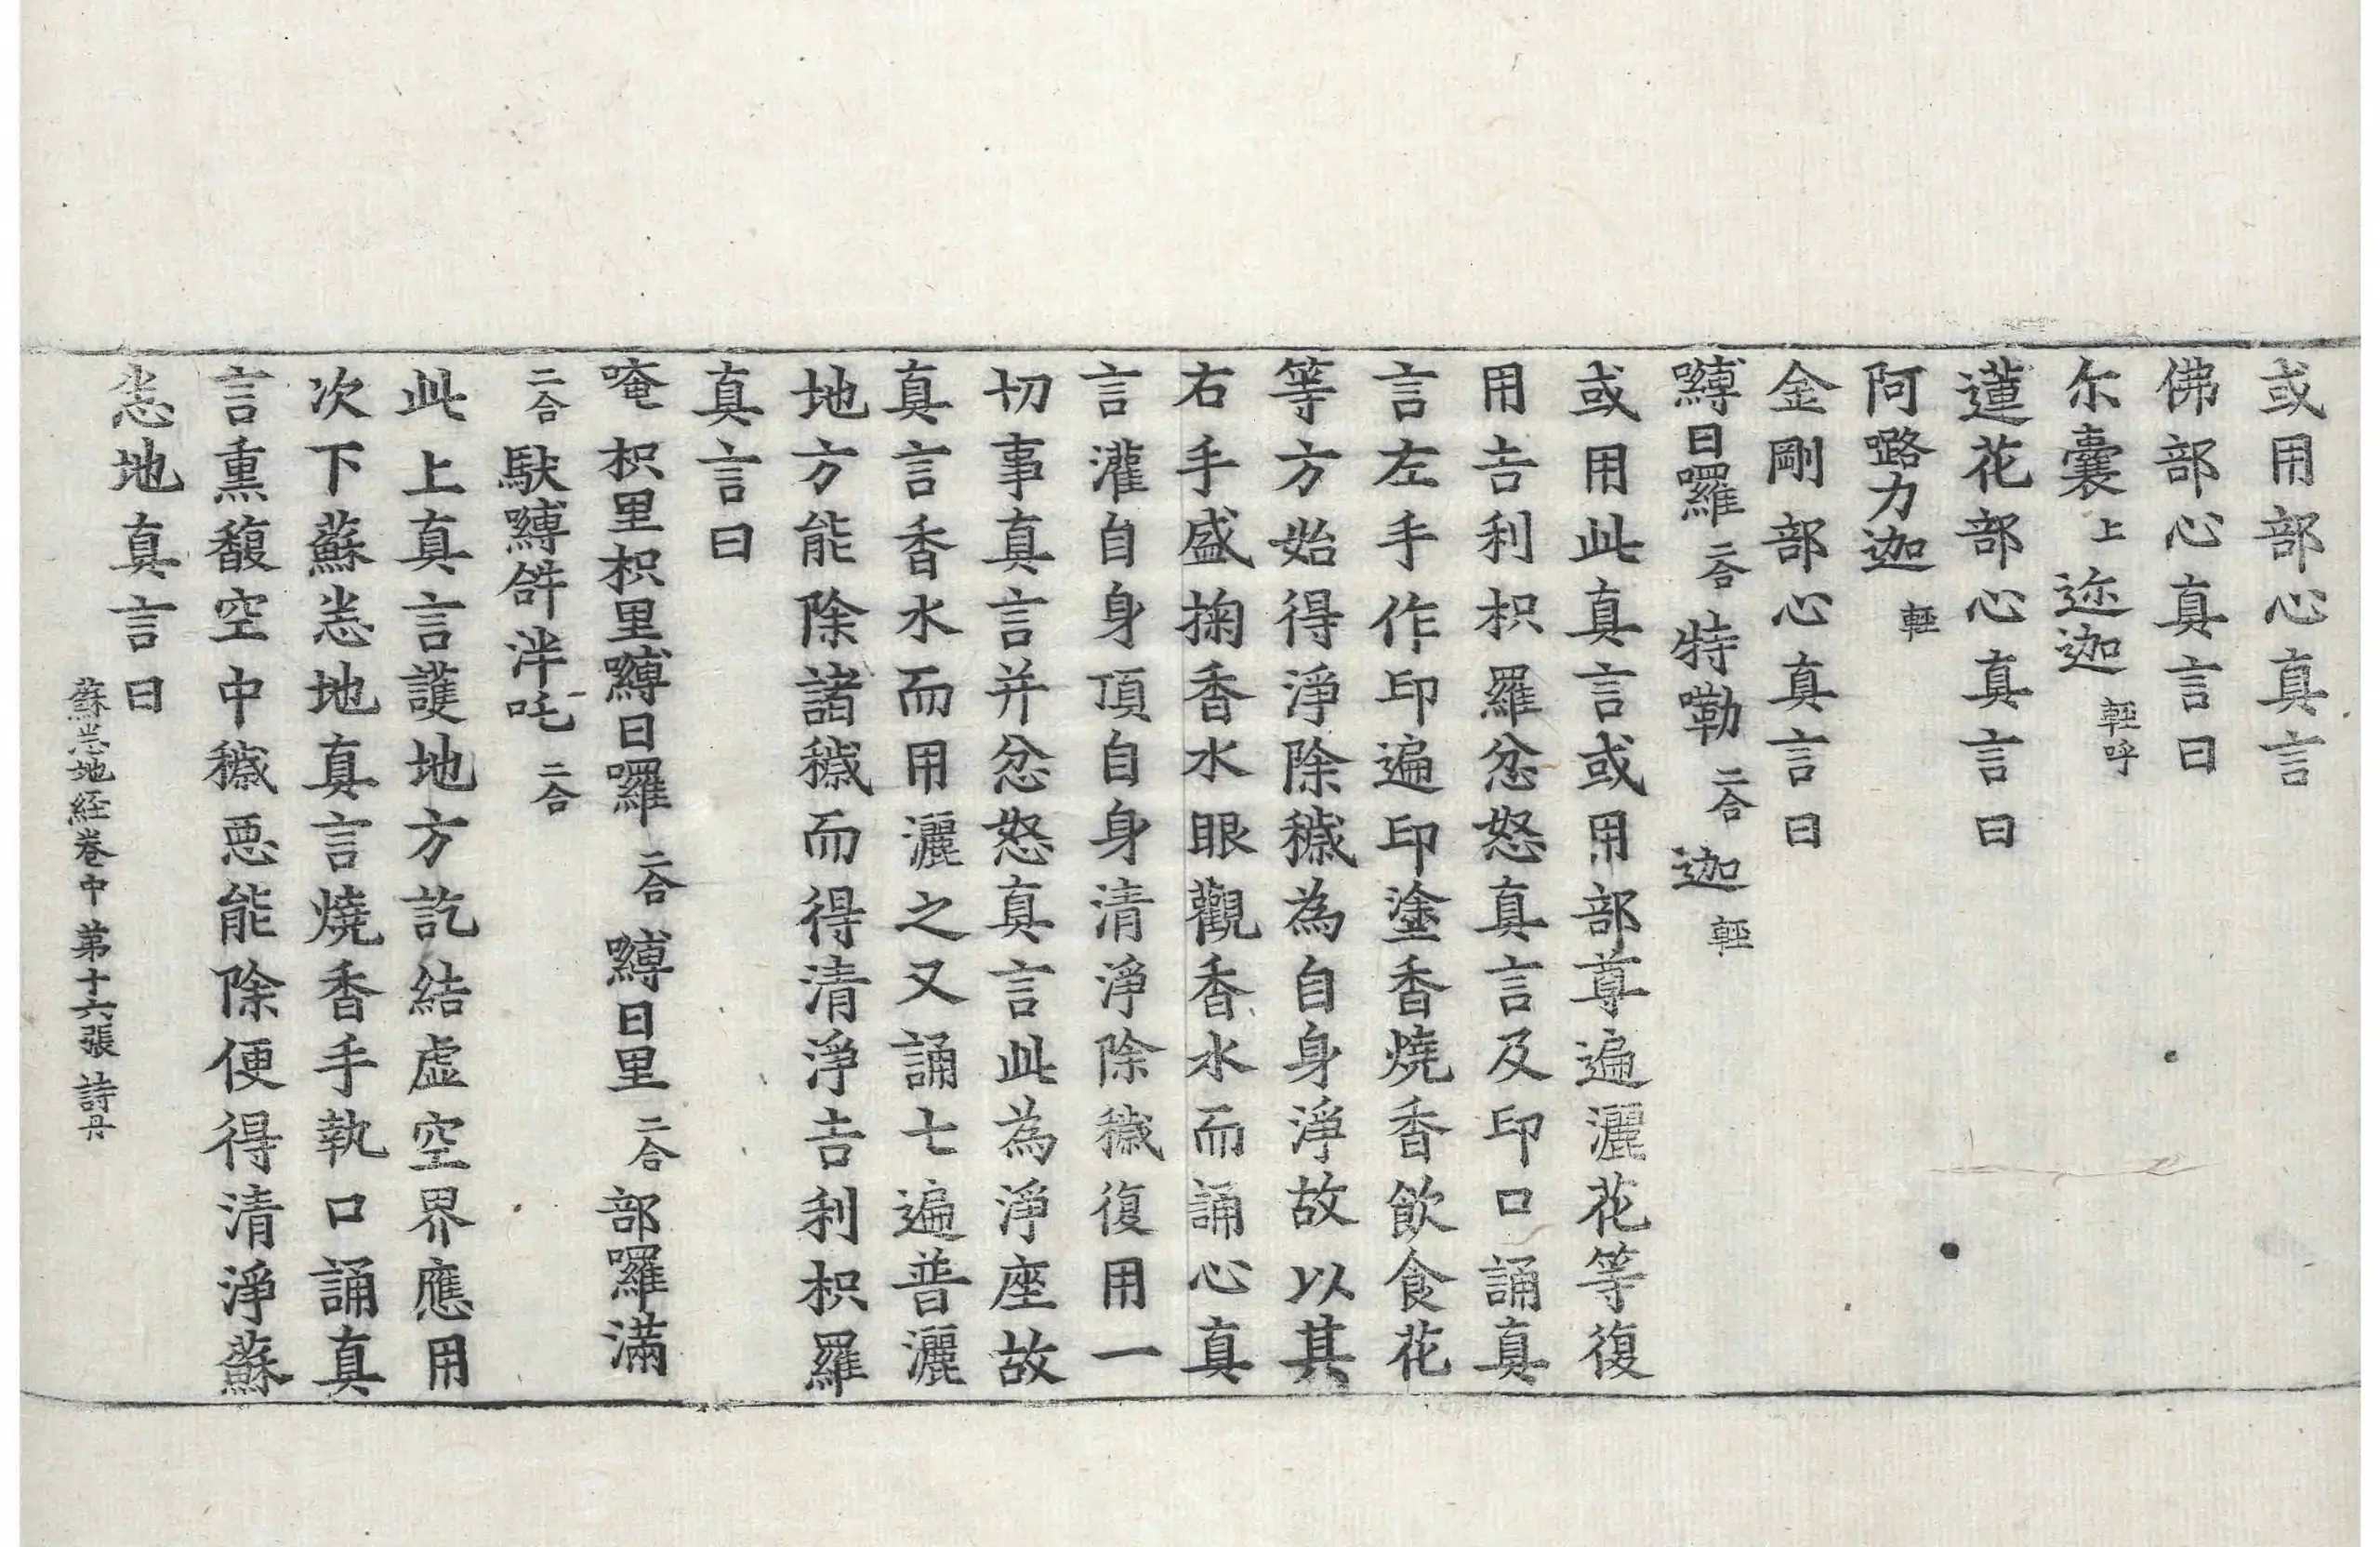 或用部心真言
佛部心真言曰
尒囊上迩迦輕呼
蓮花部心真言曰
阿𡀔力迦輕
金剛部心真言曰
嚩日囉二合特嘞二合迦輕
或用此真言或用部尊遍灑花等復
用吉利枳羅忿怒真言及印口誦真
言左手作印遍印塗香燒香飲食花
等方始得淨除穢為自身淨故以其
右手盛掬香水眼觀香水而誦心真
言灌自身頂自身清淨除穢復用一
切事真言并忿怒真言此為淨座故
真言香水而用灑之又誦七遍普灑
地方能除諸穢而得清淨吉利枳羅
真言曰
唵枳里枳里嚩日囉二合嚩日里二合部囉滿
二合馱嚩𤙖泮吒二合
此上真言護地方訖結虛空界應用
次下蘇悉地真言燒香手執口誦真
言熏馥空中穢惡能除便得清淨蘇
悉地真言曰
蘇悉地経卷中 苐十六張 詩丹